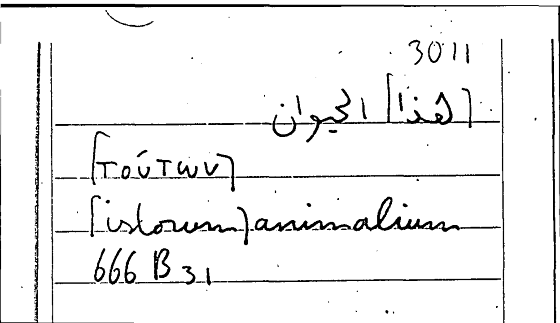 3011
[هذا] الحيوان
[τούτων]
[istorum] animalium
666 B 31